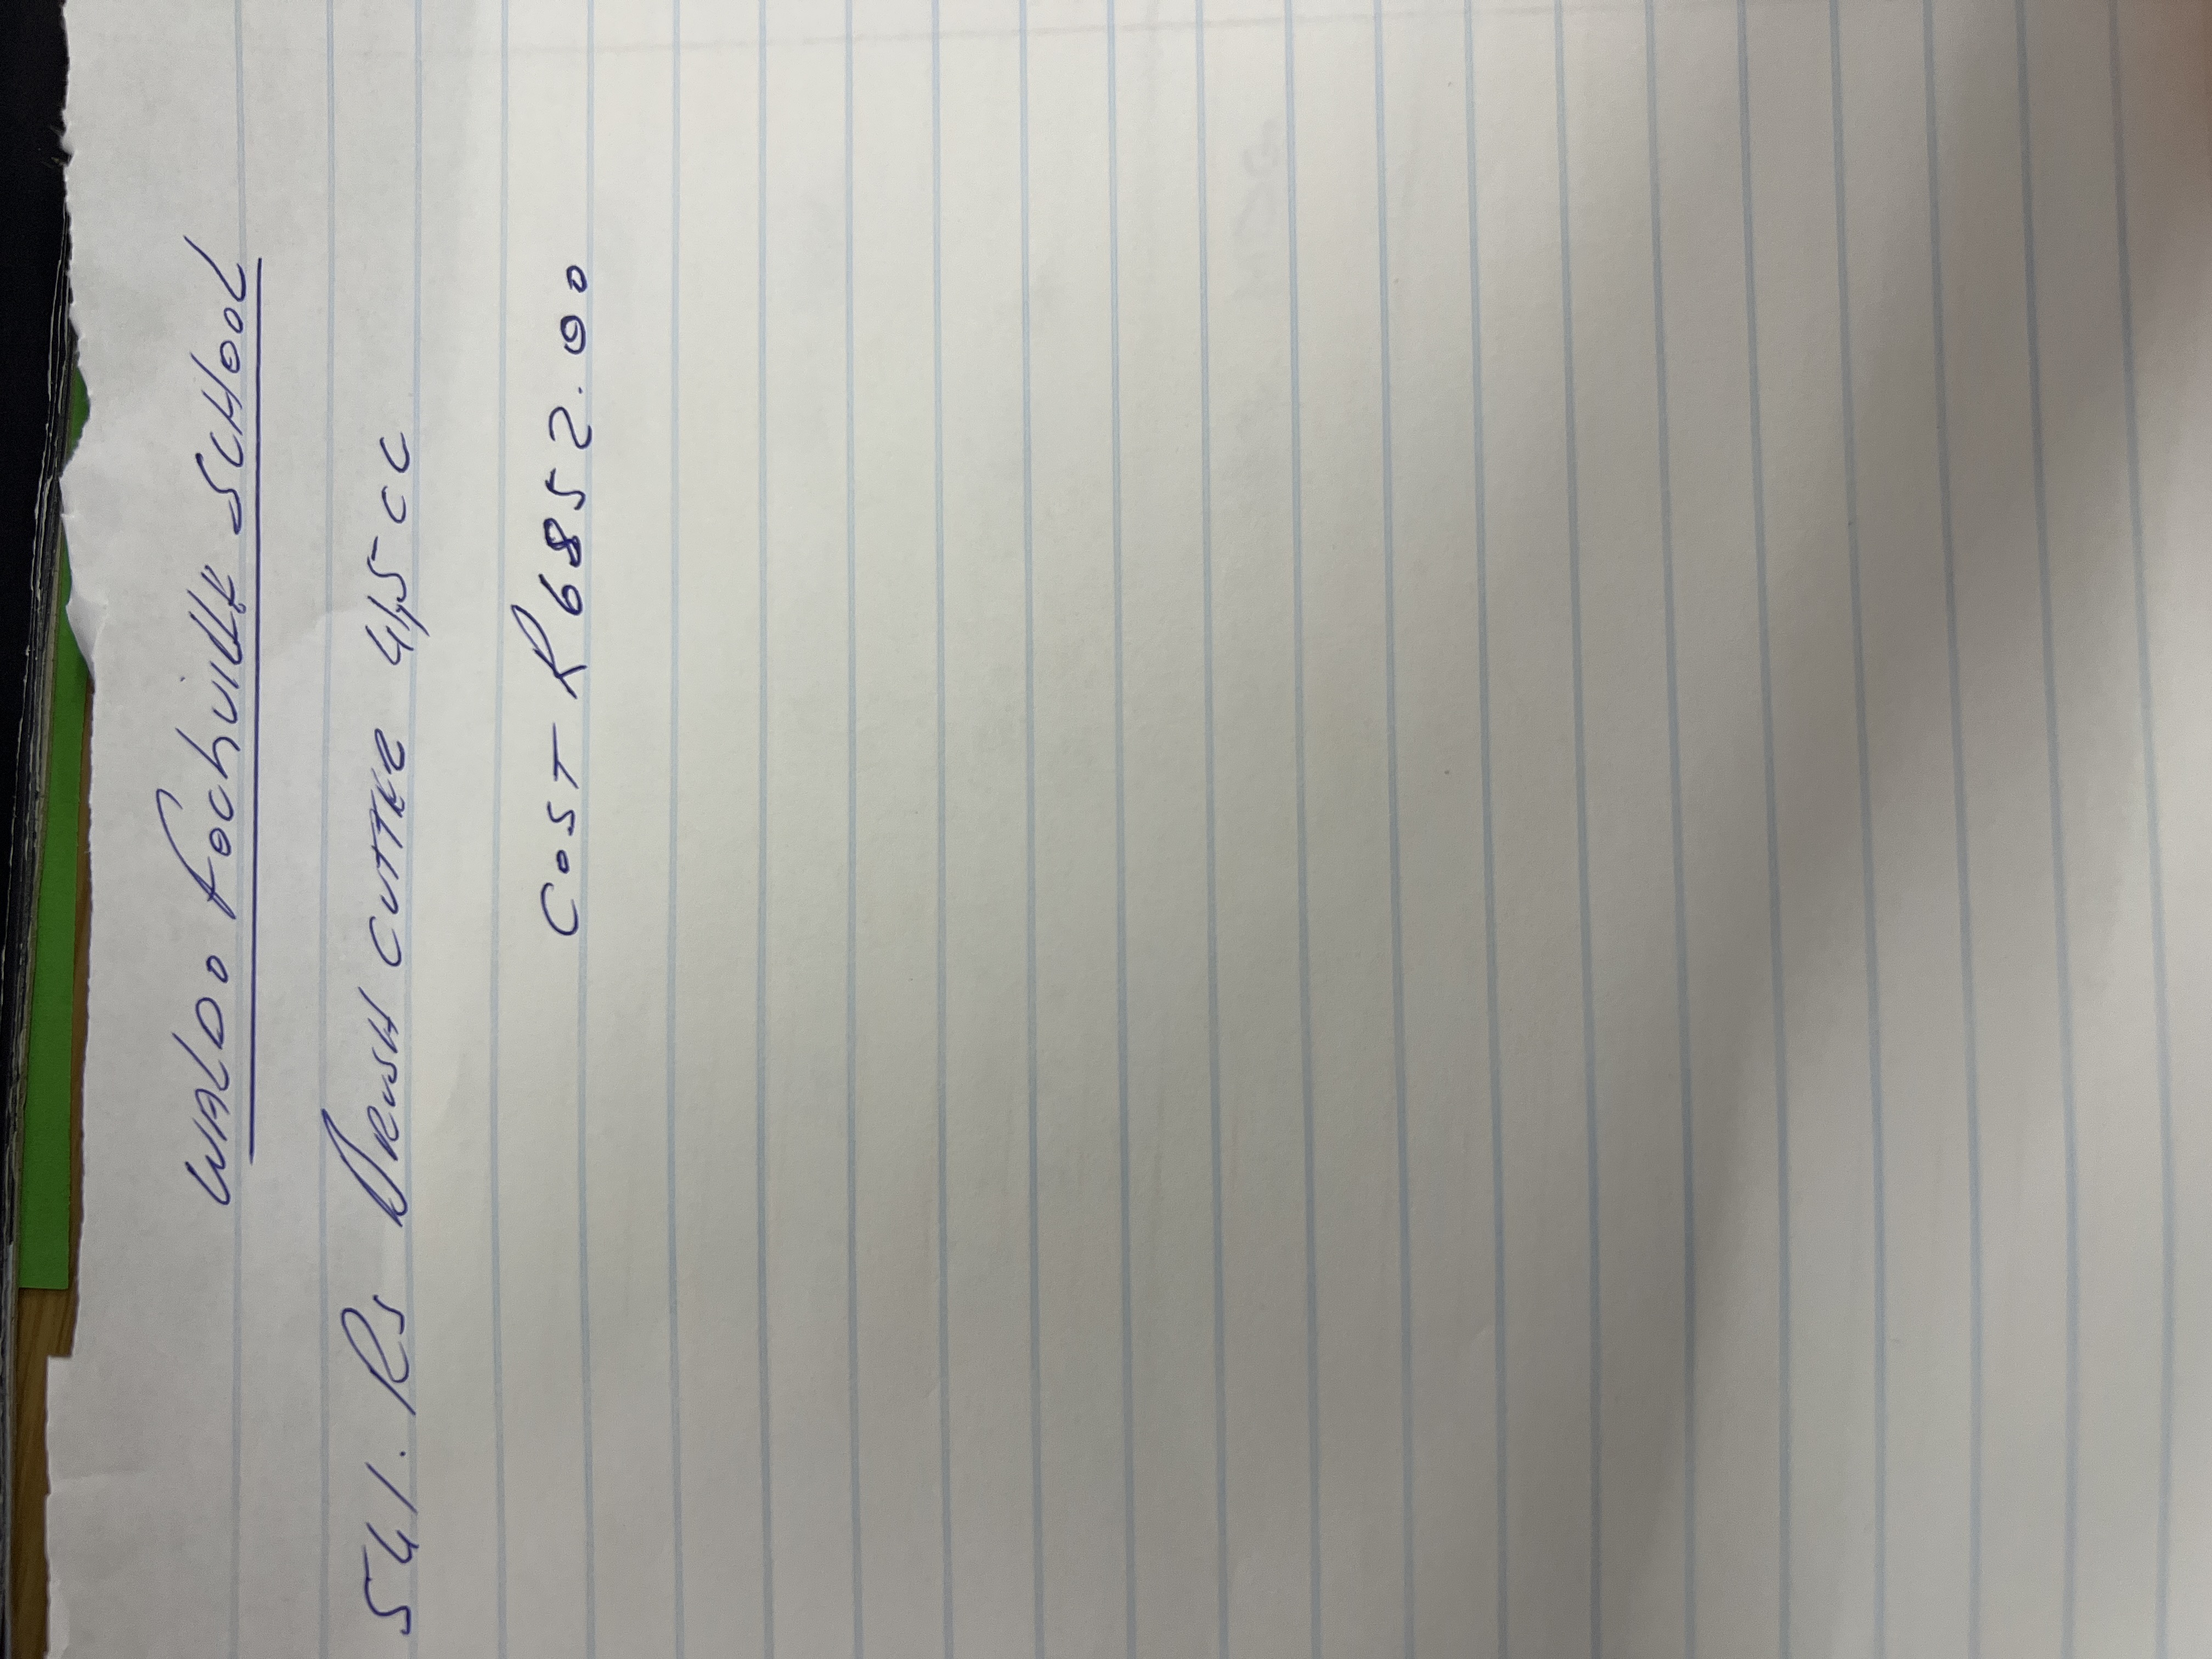 WALDO Fochville SCHOOL
541. RS BRUSH CUTTER 41,5 CC
COST R 6852.00